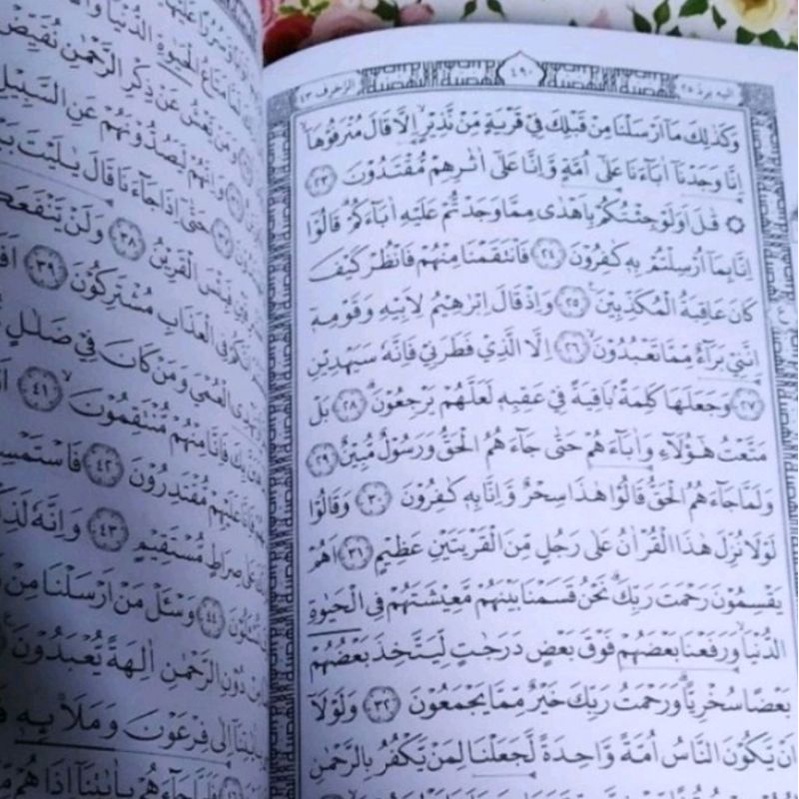 اليه يرد ٢٥
٤٩٠
الزخرف ٤٣
وَكَذٰلِكَ مَآ اَرْسَلْنَا مِنْ قَبْلِكَ فِيْ قَرْيَةٍ مِّنْ نَّذِيْرٍ اِلَّا قَالَ مُتْرَفُوْهَآ ۙ
اِنَّا وَجَدْنَآ اٰبَاۤءَنَا عَلٰٓى اُمَّةٍ وَّاِنَّا عَلٰٓى اٰثٰرِهِمْ مُّقْتَدُوْنَ ﴿٢٣﴾
۞ قٰلَ اَوَلَوْ جِئْتُكُمْ بِاَهْدٰى مِمَّا وَجَدْتُّمْ عَلَيْهِ اٰبَاۤءَكُمْ قَالُوْٓا
اِنَّا بِمَآ اُرْسِلْتُمْ بِهٖ كٰفِرُوْنَ ﴿٢٤﴾ فَانْتَقَمْنَا مِنْهُمْ فَانْظُرْ كَيْفَ
كَانَ عَاقِبَةُ الْمُكَذِّبِيْنَ ﴿٢٥﴾ وَاِذْ قَالَ اِبْرٰهِيْمُ لِاَبِيْهِ وَقَوْمِهٖٓ
اِنَّنِيْ بَرَاۤءٌ مِّمَّا تَعْبُدُوْنَ ۙ ﴿٢٦﴾ اِلَّا الَّذِيْ فَطَرَنِيْ فَاِنَّهٗ سَيَهْدِيْنِ
﴿٢٧﴾ وَجَعَلَهَا كَلِمَةً ۢ بَاقِيَةً فِيْ عَقِبِهٖ لَعَلَّهُمْ يَرْجِعُوْنَ ۗ ﴿٢٨﴾ بَلْ
مَتَّعْتُ هٰٓؤُلَاۤءِ وَاٰبَاۤءَهُمْ حَتّٰى جَاۤءَهُمُ الْحَقُّ وَرَسُوْلٌ مُّبِيْنٌ ﴿٢٩﴾
وَلَمَّا جَاۤءَهُمُ الْحَقُّ قَالُوْا هٰذَا سِحْرٌ وَّاِنَّا بِهٖ كٰفِرُوْنَ ﴿٣٠﴾ وَقَالُوْا
لَوْلَا نُزِّلَ هٰذَا الْقُرْاٰنُ عَلٰى رَجُلٍ مِّنَ الْقَرْيَتَيْنِ عَظِيْمٍ ﴿٣١﴾ اَهُمْ
يَقْسِمُوْنَ رَحْمَتَ رَبِّكَ ۗ نَحْنُ قَسَمْنَا بَيْنَهُمْ مَّعِيْشَتَهُمْ فِى الْحَيٰوةِ
الدُّنْيَا ۙ وَرَفَعْنَا بَعْضَهُمْ فَوْقَ بَعْضٍ دَرَجٰتٍ لِّيَتَّخِذَ بَعْضُهُمْ
بَعْضًا سُخْرِيًّا ۗ وَرَحْمَتُ رَبِّكَ خَيْرٌ مِّمَّا يَجْمَعُوْنَ ﴿٣٢﴾ وَلَوْلَآ
اَنْ يَّكُوْنَ النَّاسُ اُمَّةً وَّاحِدَةً لَّجَعَلْنَا لِمَنْ يَّكْفُرُ بِالرَّحْمٰنِ
مَتَاعُ الْحَيٰوةِ الدُّنْيَا
وَمَنْ يَّعْشُ عَنْ ذِكْرِ الرَّحْمٰنِ نُقَيِّضْ
وَاِنَّهُمْ لَيَصُدُّوْنَهُمْ عَنِ السَّبِيْلِ
﴿٣٧﴾ حَتّٰىٓ اِذَا جَاۤءَنَا قَالَ يٰلَيْتَ
فَبِئْسَ الْقَرِيْنُ ﴿٣٨﴾ وَلَنْ يَّنْفَعَكُمُ
اَنَّكُمْ فِى الْعَذَابِ مُشْتَرِكُوْنَ ﴿٣٩﴾
الْعُمْيَ وَمَنْ كَانَ فِيْ ضَلٰلٍ
بِكَ فَاِنَّا مِنْهُمْ مُّنْتَقِمُوْنَ ۙ ﴿٤١﴾
عَلَيْهِمْ مُّقْتَدِرُوْنَ ﴿٤٢﴾ فَاسْتَمْسِكْ
عَلٰى صِرَاطٍ مُّسْتَقِيْمٍ ﴿٤٣﴾ وَاِنَّهٗ
﴿٤٤﴾ وَسْـَٔلْ مَنْ اَرْسَلْنَا مِنْ
دُوْنِ الرَّحْمٰنِ اٰلِهَةً يُّعْبَدُوْنَ
اِلٰى فِرْعَوْنَ وَمَلَا۟ىِٕهٖ
جَاۤءَهُمْ بِاٰيٰتِنَآ اِذَا هُمْ